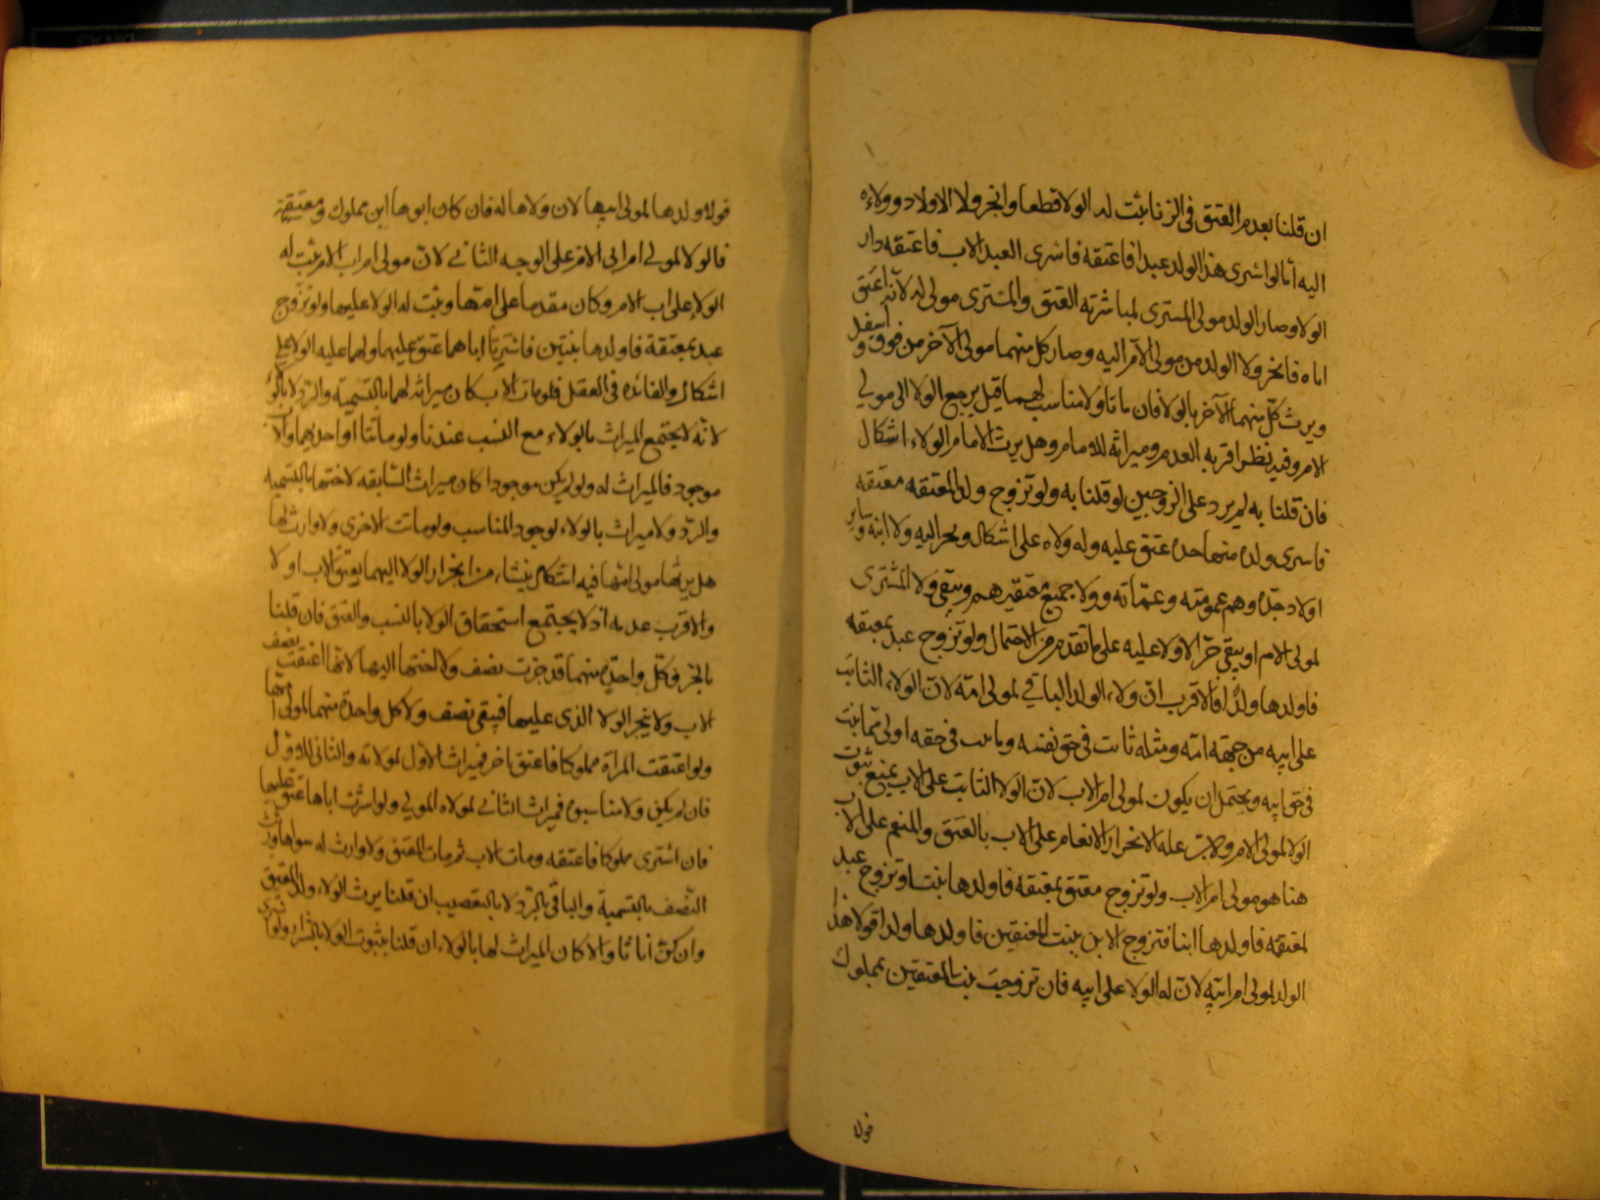 ان قلنا بعدم العتق في الزنا يثبت له الولا قطعا وانجر ولا الاولاد وولاءه
اليه اما لو اشترى هذا الولد عبدا فاعتقه فاشترى العبد الاب فاعتقه دار
الولا وصار الولد مولى المشترى لمباشرته العتق والمشترى مولى له لانه اعتق
اباه فانجر ولا الولد من مولى الام اليه وصار كل منهما مولى الآخر من فوق و اسفل
ويرث كل منهما الآخر بالولا فان ماتا ولا مناسب لهما قيل يرجع الولا الى مولى
الام وفيه نظر اقربه العدم وميراثه للامام وهل يرث الامام الولاء اشكال
فان قلنا به لم يرد على الزوجين لو قلنا به ولو تزوج ولد المعتقه معتقه
فاشرى ولده منها جده عتق عليه وله ولاه على اشكال ويجر اليه ولا ابنه وساير
اولاد جده وهم عمومته وعماته وولا جميع معتقيهم ويبقى ولا المشترى
لمولى الام او يبقى حرا لا ولا عليه على ما تقدم من الاحتمال ولو تزوج عبد بمعتقه
فاولدها ولدا فالاقرب ان ولاء الولد الباقي لمولى امه لان الولاء الثابت
على ابيه من جهة امه ومثله ثابت في حق نفسه وما ثبت في حقه اولى مما ثبت
في حق ابيه ويحتمل ان يكون لمولى ام الاب لان الولا الثابت على الاب يمنع ثبوت
الولا لمولى الام ولا يترتب عليه الانجرار الانعام على الاب بالعتق والمنعم على الاب
هنا هو مولى ام الاب ولو تزوج معتق بمعتقه فاولدها بنتا وتزوج عبد
لمعتقه فاولدها ابنا فتزوج الابن ببنت المعتقين فاولدها ولدا فولا هذا
الولد لمولى ام ابيه لان له الولا على ابيه فان تزوجت بنت المعتقين بمملوك
فولا
فولا ولدها لمولى ابيها لان ولاها له فان كان ابوها ابن مملوك ومعتقة
فالولا لمولى ام ابي الام على الوجه الثاني لان مولى ام اب الام يثبت له
الولا على اب الام وكان مقدما على امها وثبت له الولا عليها ولو تزوج
عبد بمعتقة فاولدها بنتين فاشتريا اباهما عتق عليهما ولهما عليه الولا على
اشكال والفائده في العقل فلو مات الاب كان ميراثه لهما بالتسمية والرد لا بالولا
لانه لا يجتمع الميراث بالولاء مع النسب عندنا ولو ماتتا او احديهما والاب
موجود فالميراث له ولو لم يكن موجودا كان ميراث السابقه لاختها بالتسميه
والرد ولا ميراث بالولاء لوجود المناسب ولو ماتت الاخرى ولا وارث لها
هل يرثها مولى امها فيه اشكال ينشاء من انجرار الولا اليهما بعتق الاب او لا
والاقرب عدمه اذ لا يجتمع استحقاق الولا بالنسب والعتق فان قلنا
بالجر فكل واحدة منهما قد جرت نصف ولا اختها اليها لانها اعتقت نصف
الاب ولا ينجر الولا الذى عليها فيبقى نصف ولا كل واحدة منهما لمولى امها
ولو اعتقت المرأة مملوكا فاعتق اخر فميراث الاول لمولاته والثاني للاول
فان لم يكن ولا مناسبوه فميراث الثاني لمولاة المولى ولو اشترت اباها عتق عليها
فان اشترى مملوكا فاعتقه ومات الاب ثم مات المعتق ولا وارث له سواها ورثت
النصف بالتسمية والباقي بالرد لا بالتعصيب ان قلنا يرث الولاء ولد المعتق
وان كن اناثا والا كان الميراث لها بالولاء ان قلنا بثبوت الولا بالشراء ولو اشترى